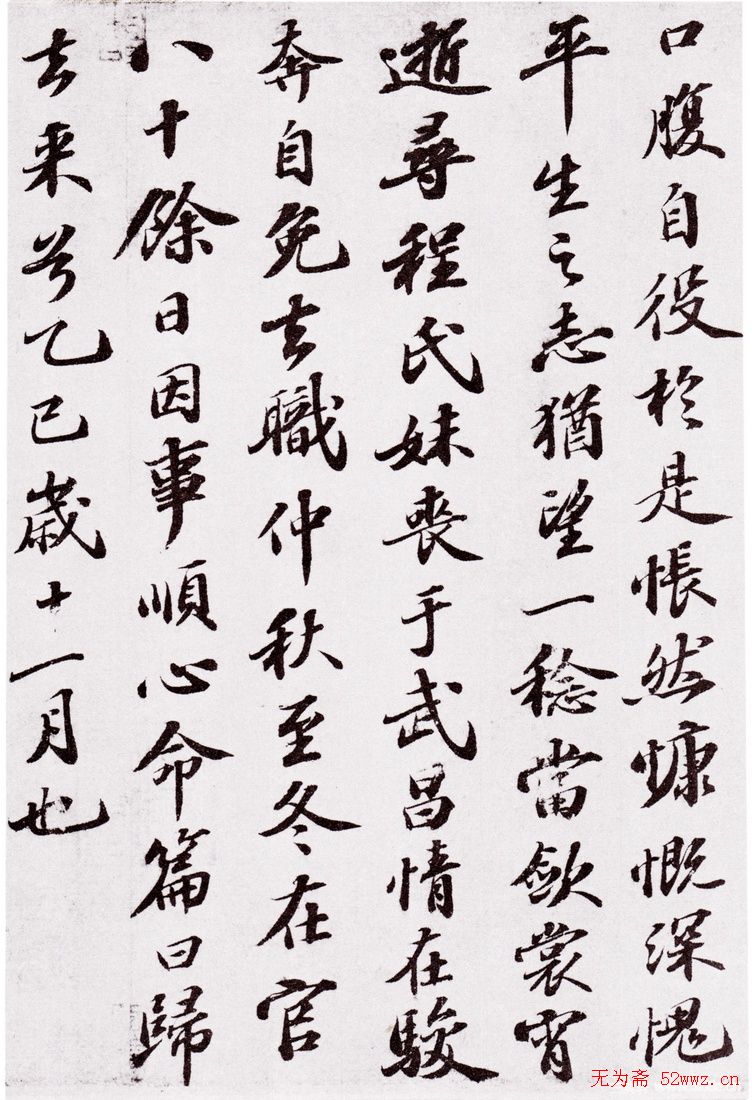 口腹自役於是悵然慷慨深愧
平生之志猶望一稔當斂裳宵
逝尋程氏妹喪于武昌情在駿
奔自免去職仲秋至冬在官
八十餘日因事順心命篇曰歸
去来兮乙巳歲十一月也
无为斋 52wwz.cn